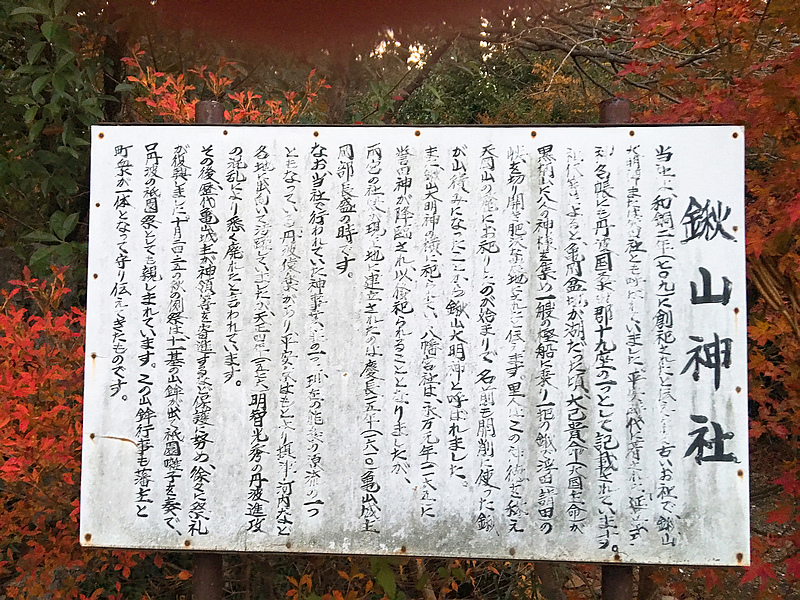 鍬山神社
当社は、和銅二年(七〇九)に創祀されたと伝えられる古いお社で、鍬山
大明神また社とも呼ばれていました。平安時代に著された延喜式
神名帳にも丹波国桑田郡十九座の一つとして記載されています。
によると亀岡盆地が湖だった頃、大己貴命(大国主命)が
黒柄に八人の神様を集め一艘の樫船に乗り一把の鍬で浮田請田の
峡を切り開き肥沃な農地にされたと伝えます。里人はこの神徳を称え
天岡山の麓にお祀りしたのが始まりで、名の前も開削に使った鍬
が山積みになったことから鍬山大明神と呼ばれました。
また、鍬山大明神の横に祀られて、八幡宮社は、永万元年(一一六五)に
誉田神が降臨され以後祀られることとなりましたが、
両宮の社殿が現在地に建立されたのは慶長十五年(一六一〇)亀山城主
岡部長盛の時です。
なお当社で行われていた神事の一つ、現在の能楽の源流の一つ
ともなっている丹波猿楽があり平安京はもとより摂津、河内など
各地に出向いて活躍していましたが天正四年(一五七六)明智光秀の丹波進攻
の混乱により悉く廃れたと言われています。
その後歴代亀山城主が神領等を寄進するなど保護に努め、徐々に祭礼
が復興しました。十月二十五日の秋の例祭は十一基の山鉾が出て祇園囃子を奏で、
口丹波の祇園祭としても親しまれています。この山鉾行事も藩主と
町衆が一体となって守り伝えてきたものです。